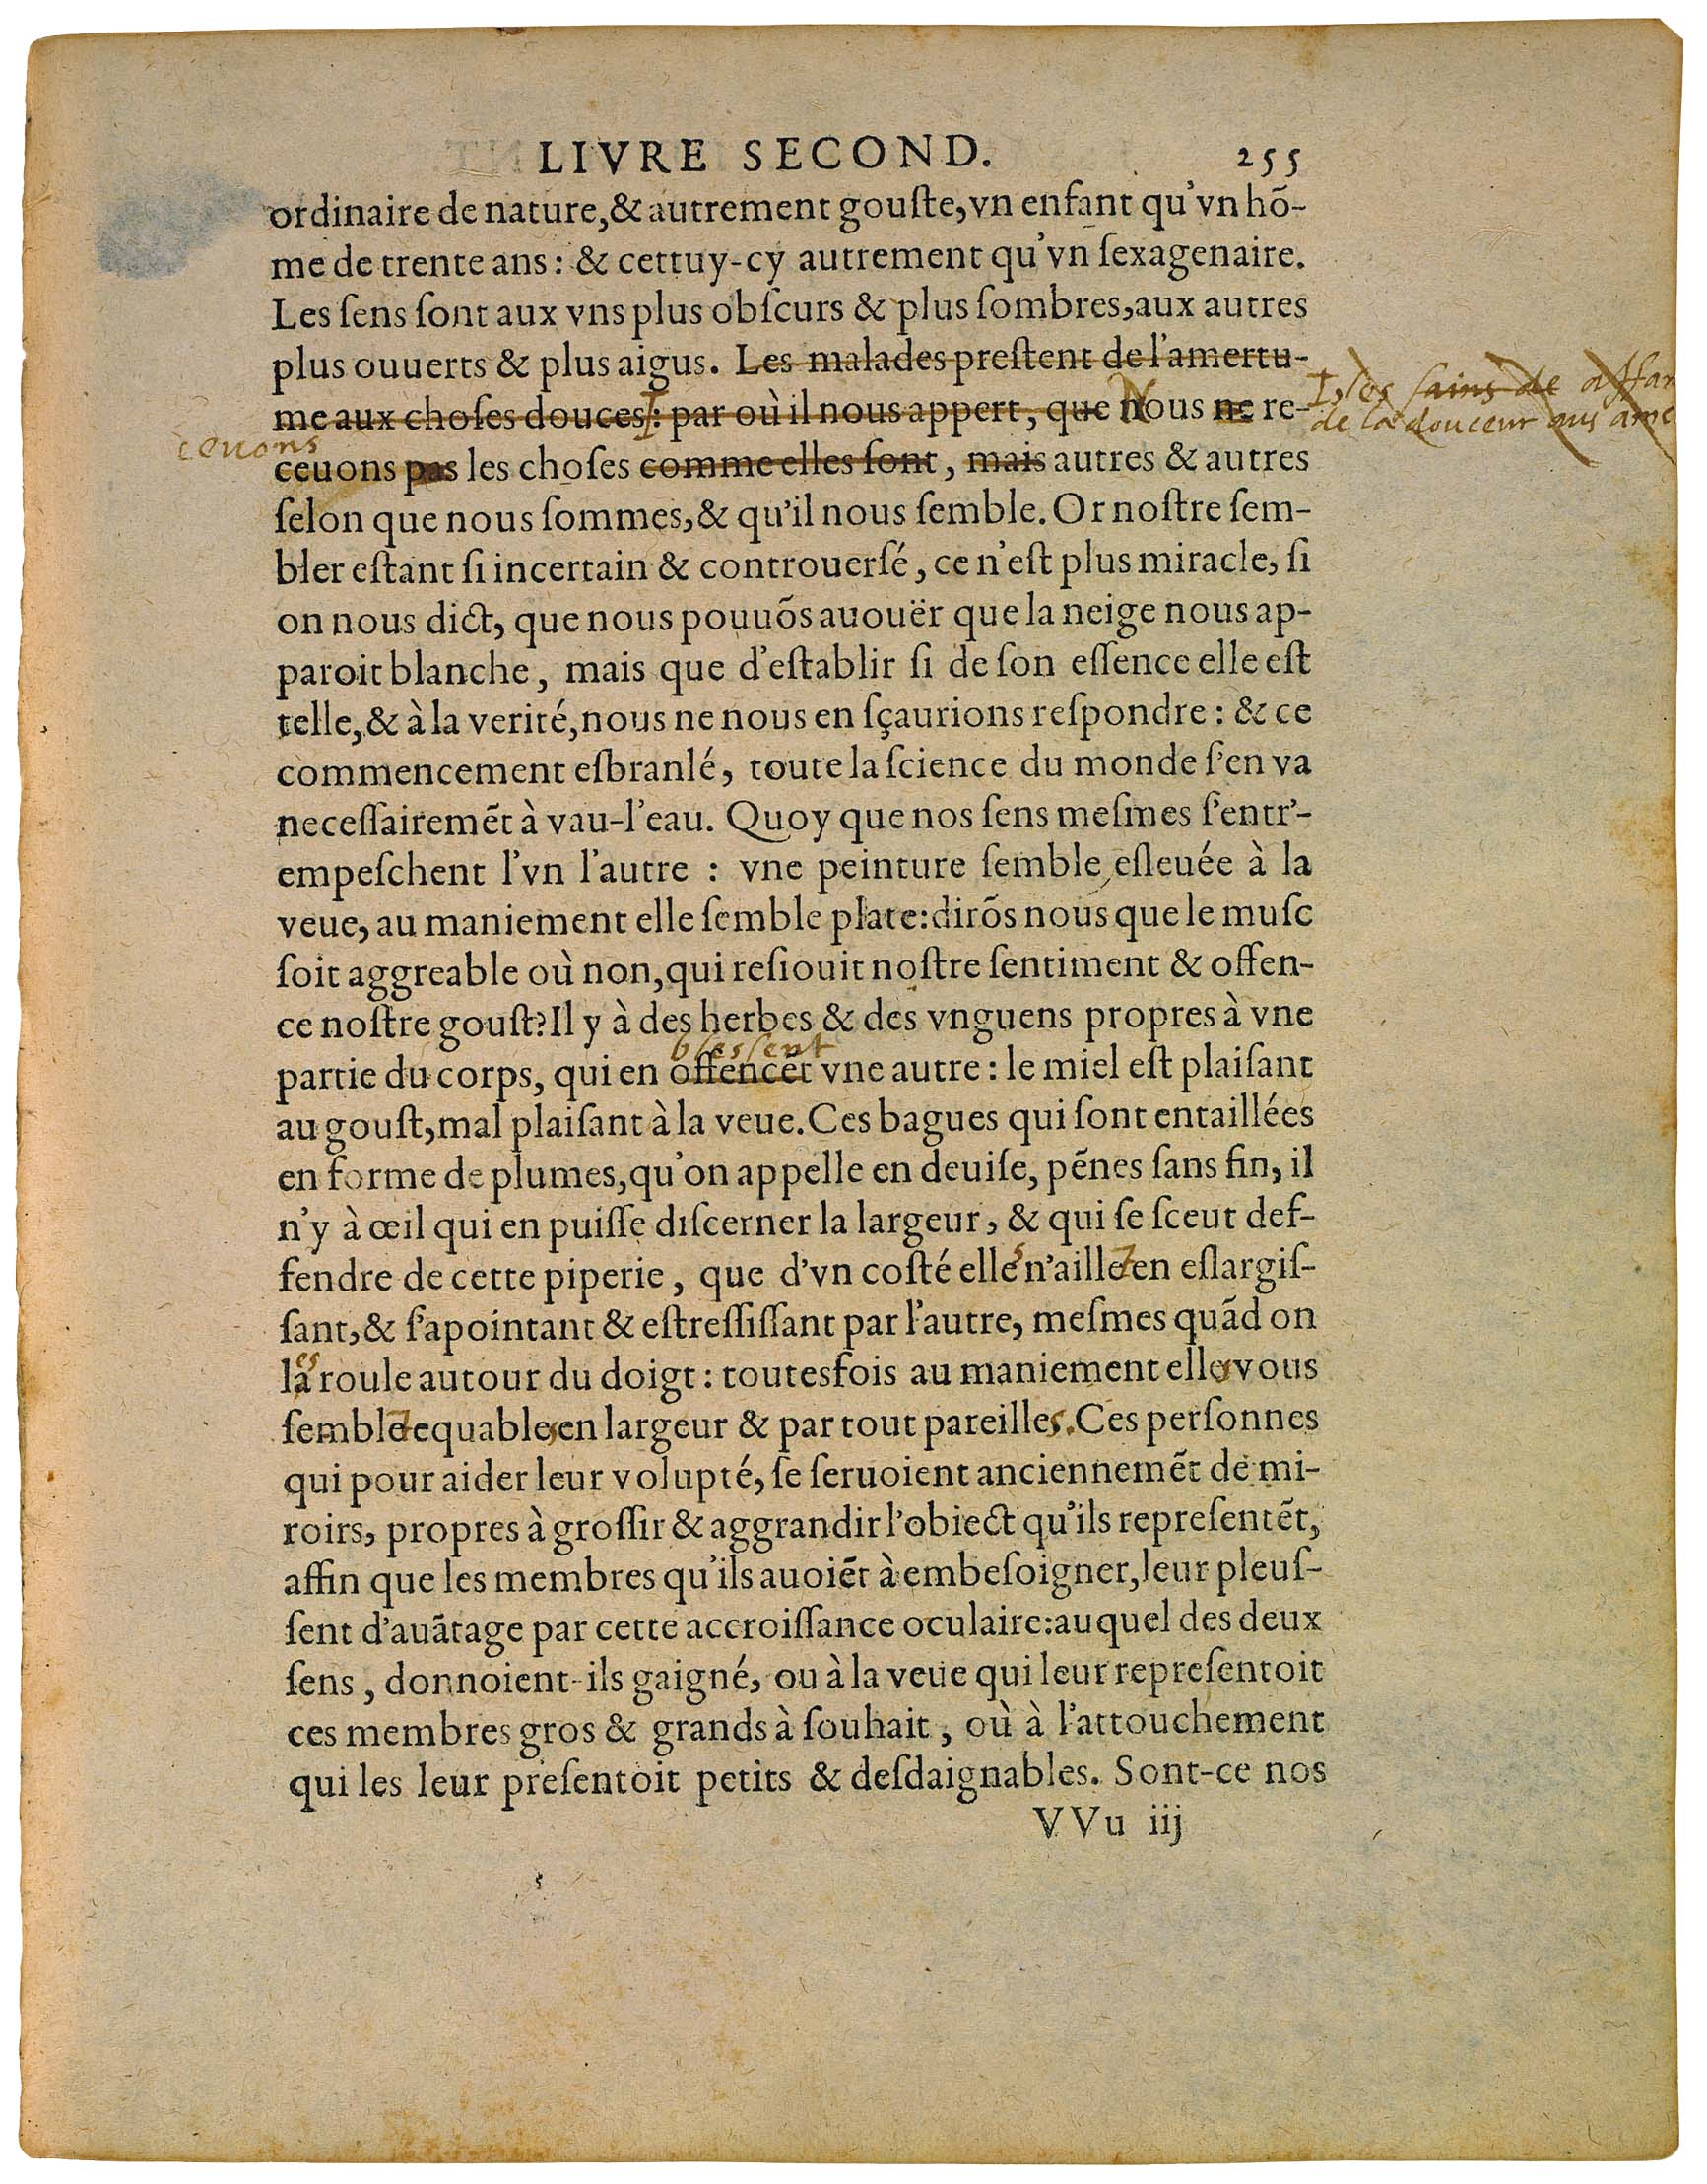 LIVRE SECOND. 255
ordinaire de nature,& autrement gouſte,vn enfant qu'vn hõ-
me de trente ans: & cettuy-cy autrement qu'vn ſexagenaire.
Les ſens ſont aux vns plus obſcurs & plus ſombres,aux autres
plus ouuerts & plus aigus. Les malades preſtent de l'amertu-
, les sains de
me aux choſes douces: par où il nous appert, que Nous ne re-
de la douceur aus
ceuons
ceuons pas les choſes comme elles ſont, mais autres & autres
ſelon que nous ſommes,& qu'il nous ſemble. Or noſtre ſem-
bler eſtant ſi incertain & controuerſé, ce n'eſt plus miracle, ſi
on nous dict, que nous pouuõs auouër que la neige nous ap-
paroit blanche, mais que d'eſtablir ſi de ſon eſſence elle eſt
telle,& à la verité,nous ne nous en ſçaurions reſpondre: & ce
commencement eſbranlé, toute la ſcience du monde ſ'en va
neceſſairemẽt à vau-l'eau. Quoy que nos ſens meſmes ſ'entr'-
empeſchent l'vn l'autre : vne peinture ſemble eſleuée à la
veue, au maniement elle ſemble plate:dirõs nous que le muſc
ſoit aggreable où non,qui reſiouit noſtre ſentiment & offen-
ce noſtre gouſt?Il y à des herbes & des vnguens propres à vne
blessent
partie du corps, qui en offencẽt vne autre: le miel eſt plaiſant
au gouſt,mal plaiſant à la veue.Ces bagues qui ſont entaillées
en forme de plumes,qu'on appelle en deuiſe, pẽnes ſans fin, il
n'y à œil qui en puiſſe diſcerner la largeur, & qui ſe ſceut def-
fendre de cette piperie, que d'vn coſté elles n'aille en eſlargiſ-
ſant,& ſ'apointant & eſtreſſiſſant par l'autre, meſmes quãd on
es
la roule autour du doigt: toutesfois au maniement elles vous
ſemble equables en largeur & par tout pareilles.Ces perſonnes
qui pour aider leur volupté, ſe ſeruoient anciennemẽt de mi-
roirs, propres à groſſir & aggrandir l'obiect qu'ils repreſentẽt,
affin que les membres qu'ils auoiẽt à embeſoigner,leur pleuſ-
ſent d'auãtage par cette accroiſſance oculaire:auquel des deux
ſens, donnoient-ils gaigné, ou à la veue qui leur repreſentoit
ces membres gros & grands à ſouhait, où à l'attouchement
qui les leur preſentoit petits & deſdaignables. Sont-ce nos
VVu iij